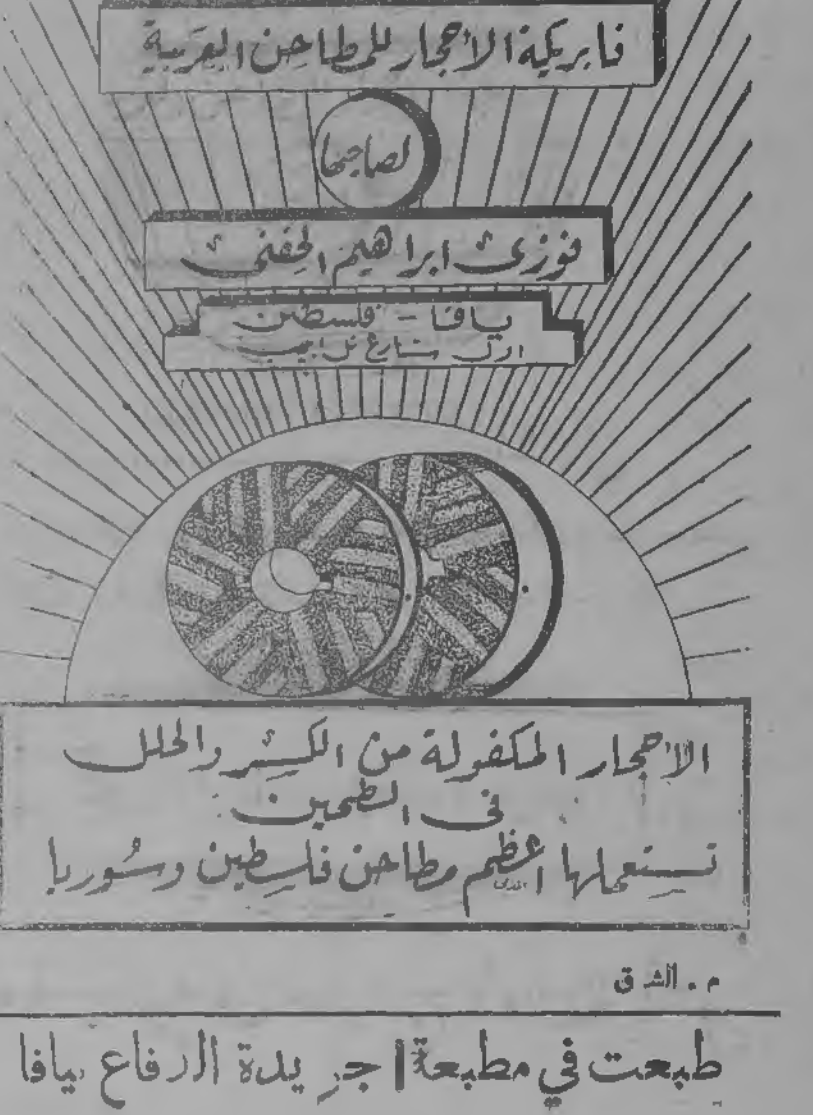 فابريكة الأحجار للمطاحن العربية
لصاحبها
فوزي ابراهيم الحفني
يافا - فلسطين
اول شارع تل ابيب
الاحجار المكفولة من الكسر والخلل
في الطحين
تستعملها اعظم مطاحن فلسطين وسوريا
م . الشرق
طبعت في مطبعة جريدة الدفاع بيافا